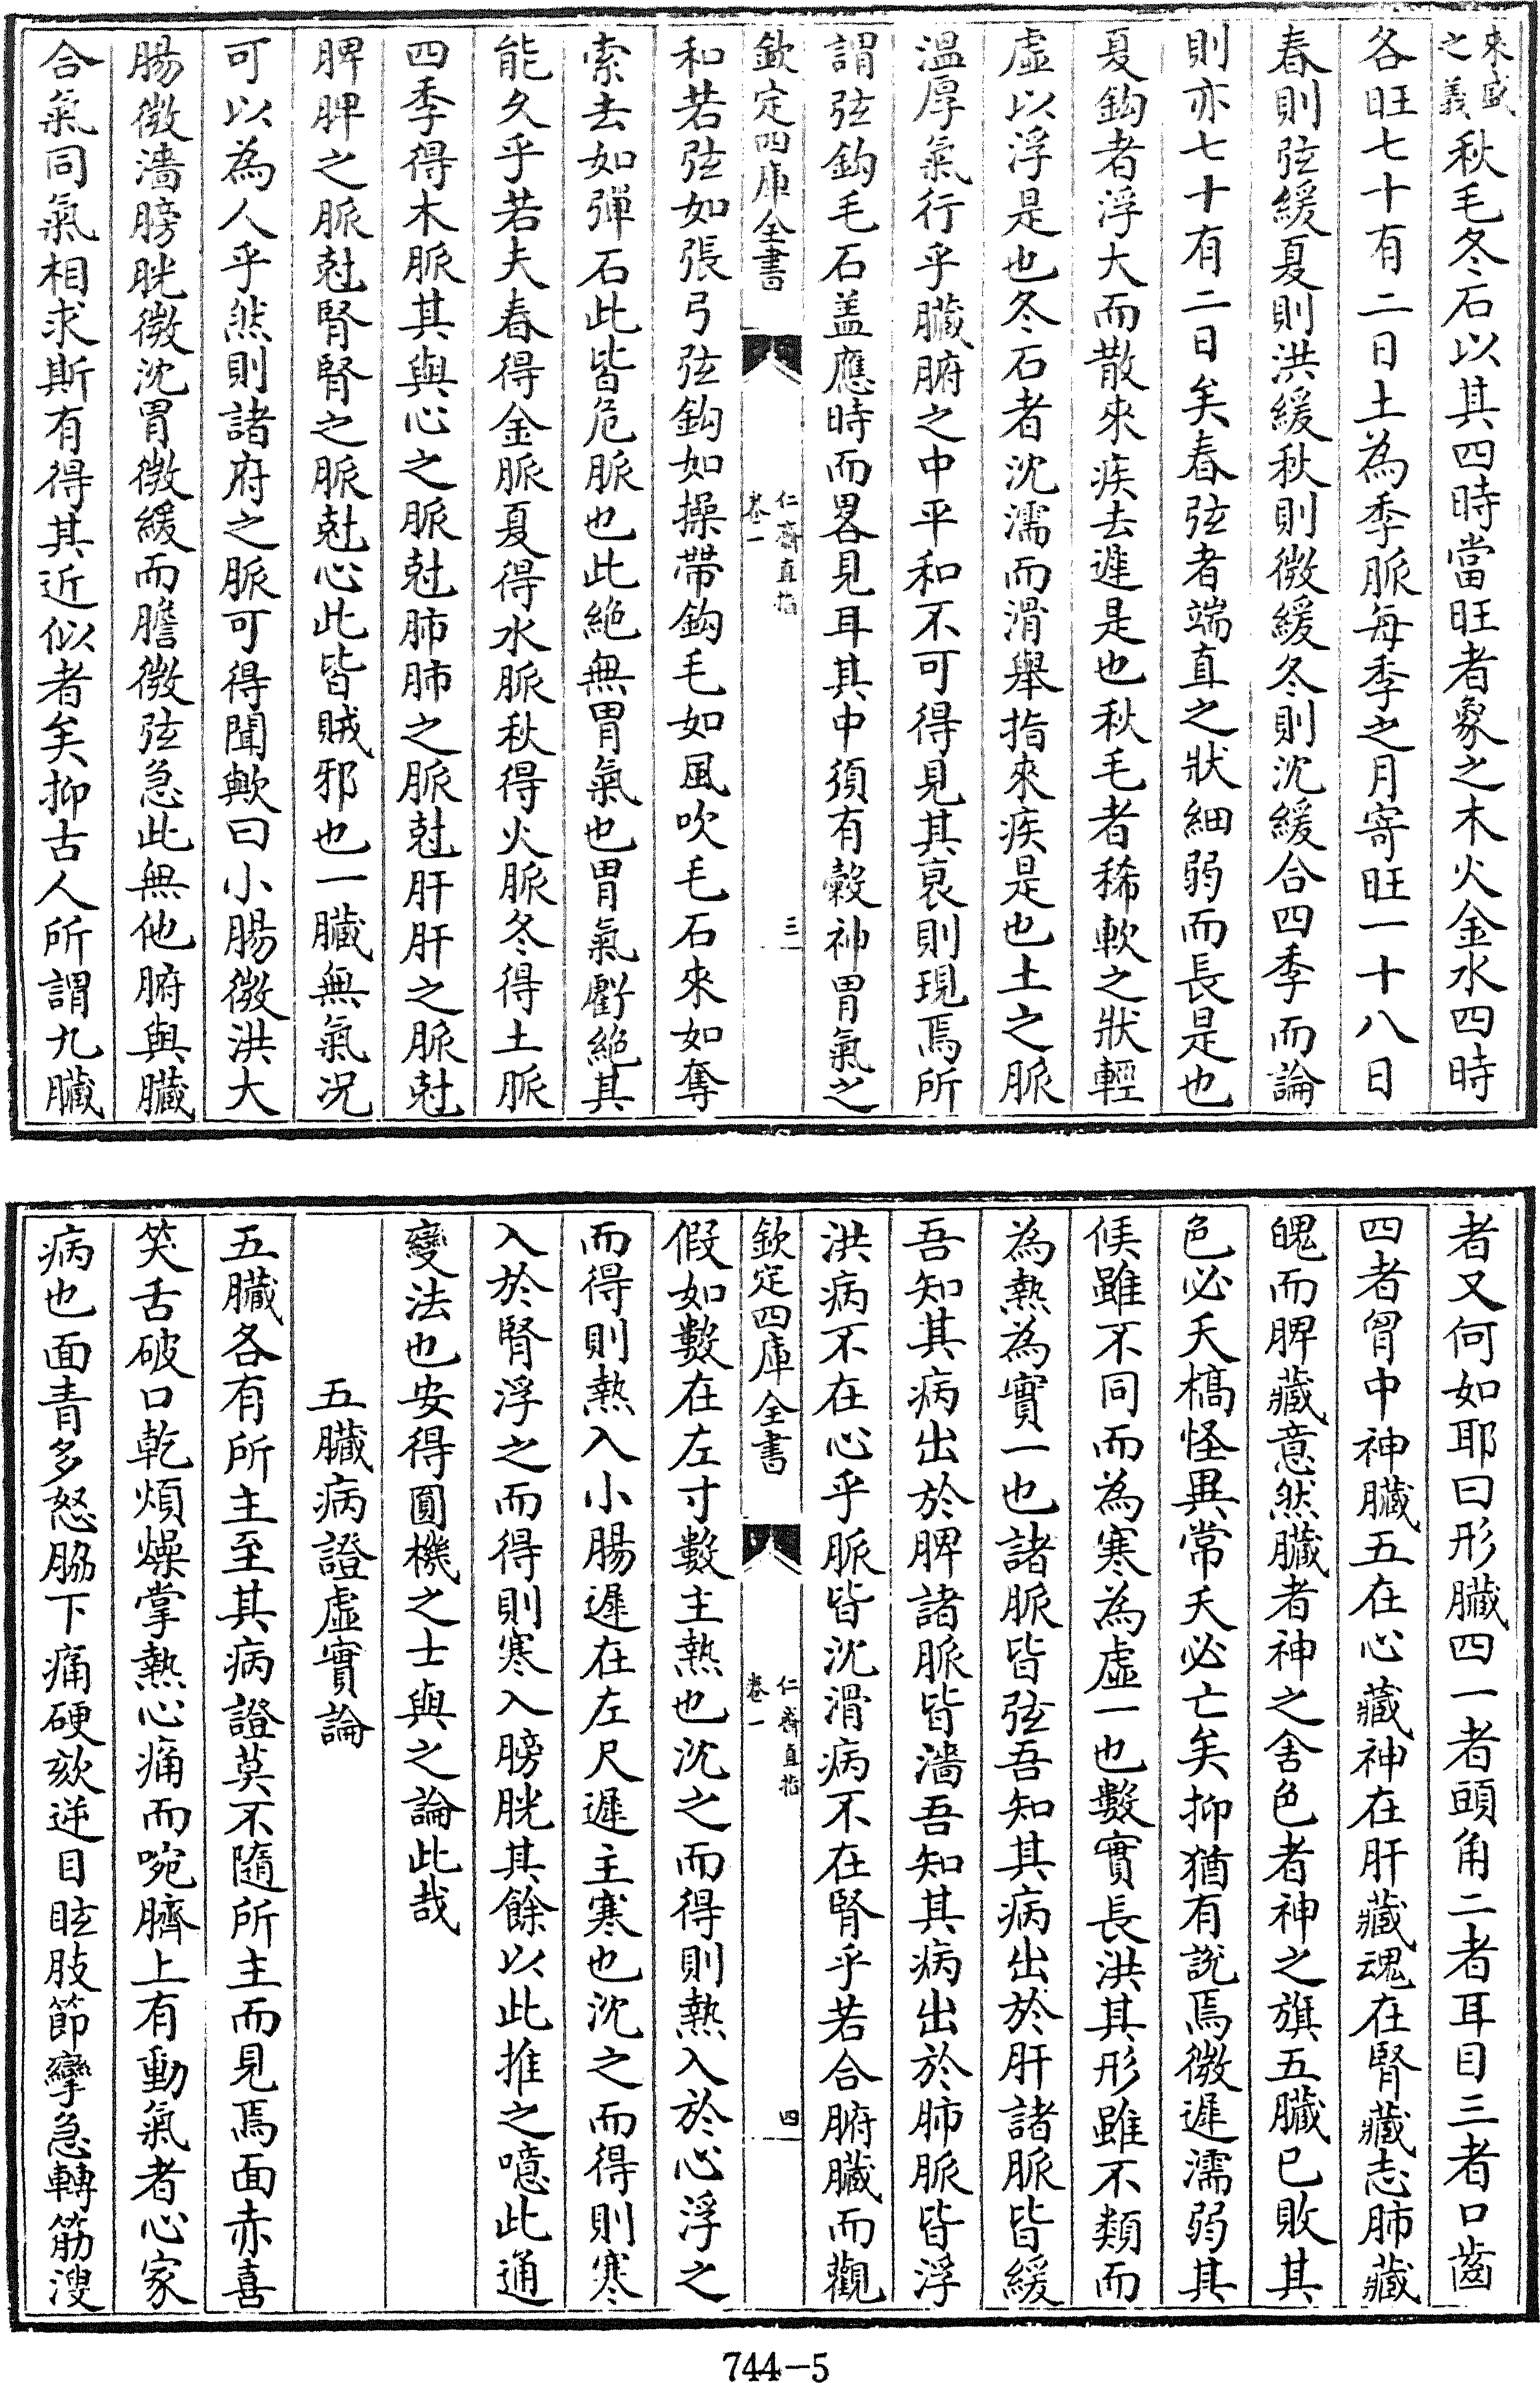 來盛之義秋毛冬石以其四時當旺者象之木火金水四時
各旺七十有二日土為季脈每季之月寄旺一十八日
春則弦緩夏則洪緩秋則微緩冬則沈緩合四季而論
則亦七十有二日矣春弦者端直之狀細弱而長是也
夏鈎者浮大而散來疾去遲是也秋毛者稀軟之狀輕
虛以浮是也冬石者沈濡而滑舉指來疾是也土之脈
溫厚氣行乎臟腑之中平和不可得見其衰則現焉所
謂弦鈎毛石盖應時而畧見耳其中須有穀神胃氣之
欽定四庫全書
仁齋直指
卷一
三
和若弦如張弓弦鈎如操帶鈎毛如風吹毛石來如奪
索去如彈石此皆危脈也此絕無胃氣也胃氣虧絕其
能久乎若夫春得金脈夏得水脈秋得火脈冬得土脈
四季得木脈其與心之脈尅肺肺之脈尅肝肝之脈尅
脾脾之脈尅腎腎之脈尅心此皆賊邪也一臟無氣况
可以為人乎然則諸府之脈可得聞歟曰小腸微洪大
腸微濇膀胱微沈胃微緩而膽微弦急此無他腑與臟
合氣同氣相求斯有得其近似者矣抑古人所謂九臟
者又何如耶曰形臟四一者頭角二者耳目三者口齒
四者胷中神臟五在心藏神在肝藏魂在腎藏志肺藏
魄而脾藏意然臟者神之舍色者神之旗五臟已敗其
色必夭槁怪異常夭必亡矣抑猶有說焉微遲濡弱其
候雖不同而為寒為虛一也數實長洪其形雖不類而
為熱為實一也諸脈皆弦吾知其病出於肝諸脈皆緩
吾知其病出於脾諸脈皆濇吾知其病出於肺脈皆浮
洪病不在心乎脈皆沈滑病不在腎乎若合腑臟而觀
欽定四庫全書
仁齋直指
卷一
四
假如數在左寸數主熱也沈之而得則熱入於心浮之
而得則熱入小腸遲在左尺遲主寒也沈之而得則寒
入於腎浮之而得則寒入膀胱其餘以此推之噫此通
變法也安得圓機之士與之論此哉
五臟病證虛實論
五臟各有所主至其病證莫不隨所主而見焉面赤喜
笑舌破口乾煩燥掌熱心痛而啘臍上有動氣者心家
病也面青多怒脇下痛硬欬逆目眩肢節攣急轉筋溲
744-5